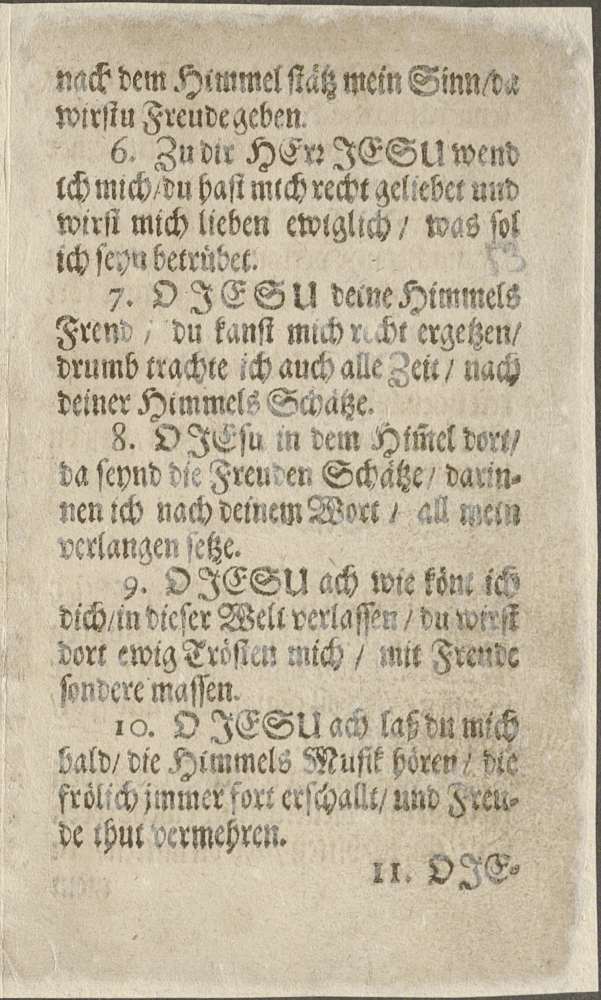 nach dem Himmel stätz mein Sinn/da
wirstu Freude geben.
6. Zu dir HErr JESU wend
ich mich/du hast mich recht geliebet und
wirst mich lieben ewiglich / was sol
ich seyn betrübet.
53
7. O JESU deine Himmels
Freud / du kanst mich recht ergetzen/
drumb trachte ich auch alle Zeit / nach
deiner Himmels Schätze.
8. O JEsu in dem Him̄el dort/
da seynd die Freuden Schätze / darin-
nen ich nach deinem Wort / all mein
verlangen setze.
9. O JESU ach wie könt ich
dich/in dieser Welt verlassen / du wirst
dort ewig Trösten mich / mit Freude
sondere massen.
10. O JESU ach laß du mich
bald/ die Himmels Musik hören / die
frölich jmmer fort erschallt/ und Freu-
de thut vermehren.
11. O JE-